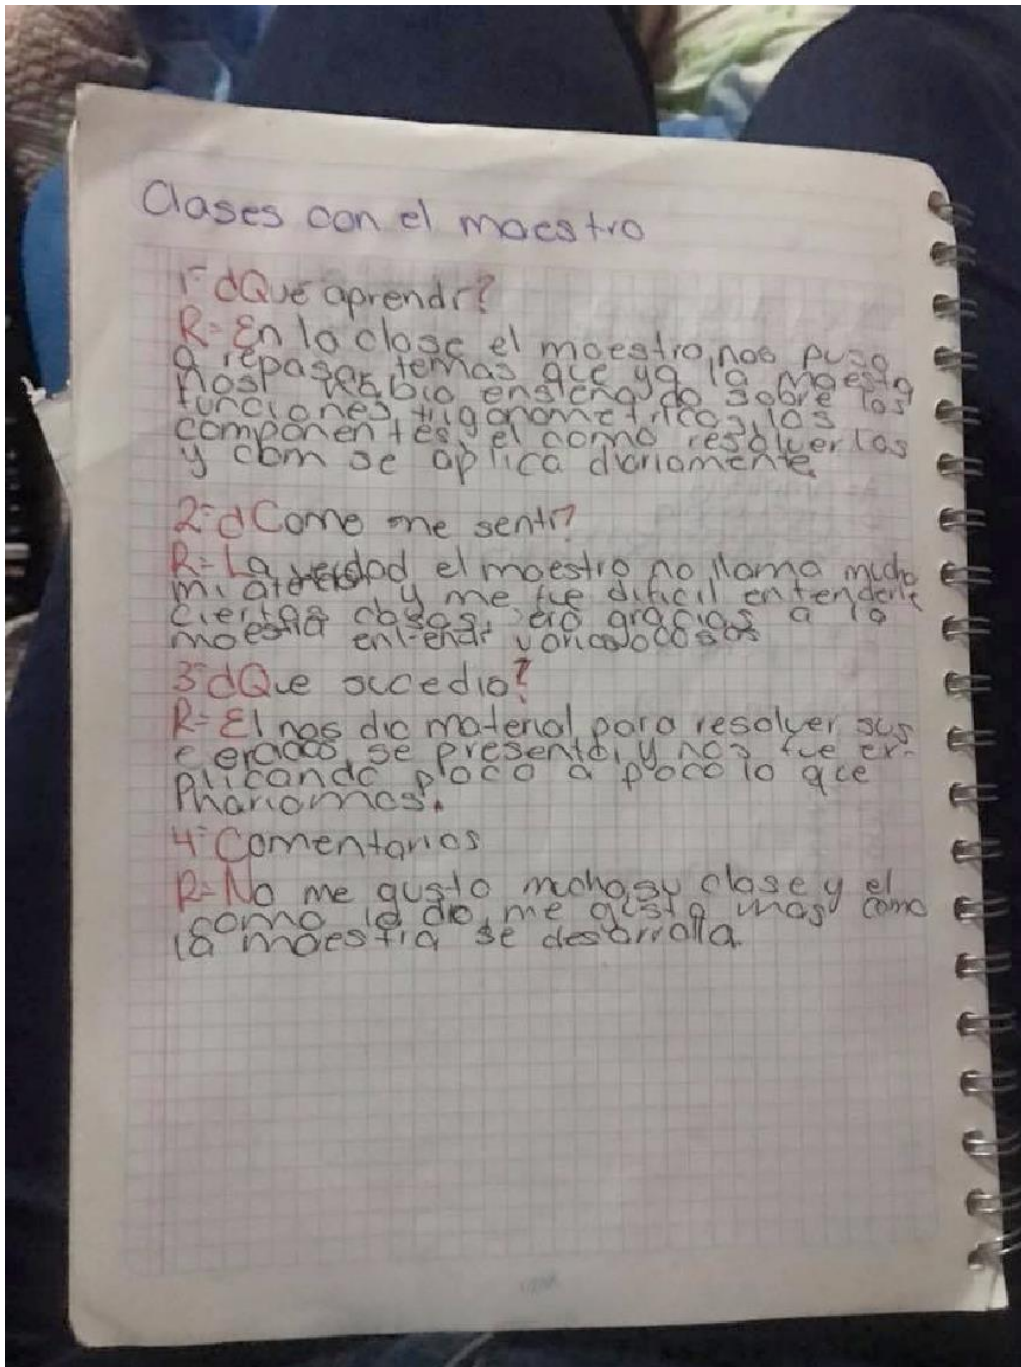 Clases con el maestro
1-¿Que aprendi?
R= En la clase el maestro nos puso
a repasar temas que ya la maestra
nos habia enseñado sobre las
funciones trigonometricas, los
componentes, el como resolverlas
y com se aplica diariamente.
2-¿Como me senti?
R= La verdad el maestro no llamo mucho
mi atencion y me fue dificil entenderle
ciertas cosas, pero gracias a la
maestra entendi varias cosas
3-¿Que sucedio?
R= El nos dio material para resolver sus
ejercicios se presentó, y nos fue ex-
plicando poco a poco lo que
hariamos.
4-Comentarios
R=No me gusto mucho su clase y el
como la dio, me gusta mas como
la maestra se desarrolla.